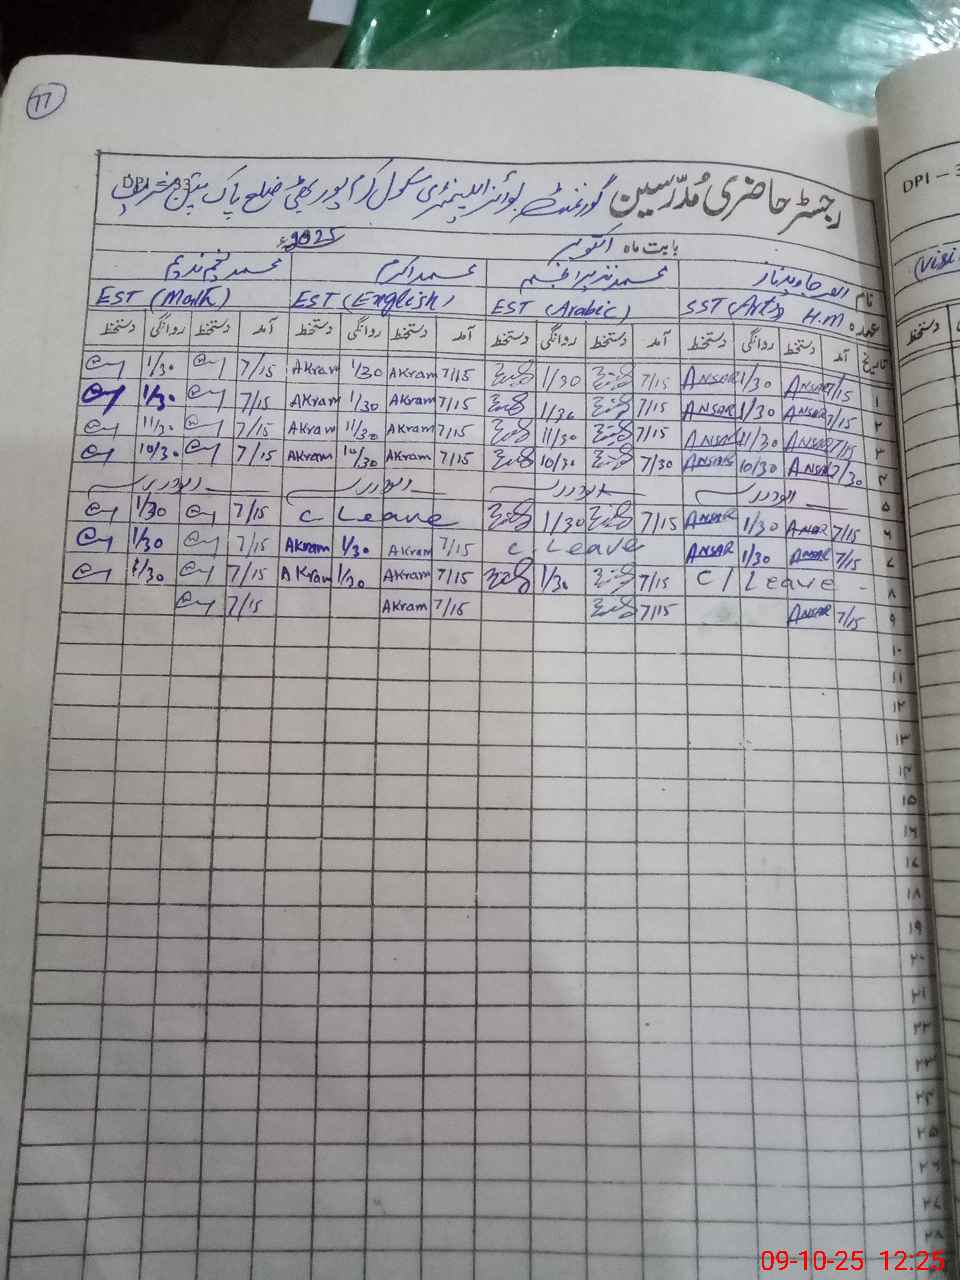 77
DPI - 33
رجسٹر حاضری مُدرّسین گورنمنٹ بوائز ایلیمنٹری سکول کرم پور بھٹی ضلع پاک پتن شریف
بابت ماہ اکتوبر 2025ء
نام انصر جاوید نیاز محمد نذیر انجم محمد اکرم محمد نعیم ندیم
عہدہ SST (Arts) H.M EST (Arabic) EST (English) EST (Math)
تاریخ آمد دستخط روانگی دستخط آمد دستخط روانگی دستخط آمد دستخط روانگی دستخط آمد دستخط روانگی دستخط
۱ 7/15 Ansar 1/30 Ansar 7/15 1/30 7/15 Akram 1/30 Akram 7/15 1/30
۲ 7/15 Ansar 1/30 Ansar 7/15 1/30 7/15 Akram 1/30 Akram 7/15 1/30
۳ 7/15 Ansar 11/30 Ansar 7/15 11/30 7/15 Akram 11/30 Akram 7/15 11/30
۴ 7/30 Ansar 10/30 Ansar 7/30 10/30 7/15 Akram 10/30 Akram 7/15 10/30
۵
۶ 7/15 Ansar 1/30 Ansar 7/15 1/30 C Leave 7/15 1/30
۷ 7/15 Ansar 1/30 Ansar C. Leave 7/15 Akram 1/30 Akram 7/15 1/30
۸ C/ Leave 7/15 1/30 7/15 Akram 1/30 Akram 7/15 1/30
۹ 7/15 Ansar 7/15 7/15 Akram 7/15
۱۰
۱۱
۱۲
۱۳
۱۴
۱۵
۱۶
۱۷
۱۸
۱۹
۲۰
۲۱
۲۲
۲۳
۲۴
۲۵
۲۶
۲۷
۲۸
DPI - 3
(Visi
دستخط
09-10-25 12:25